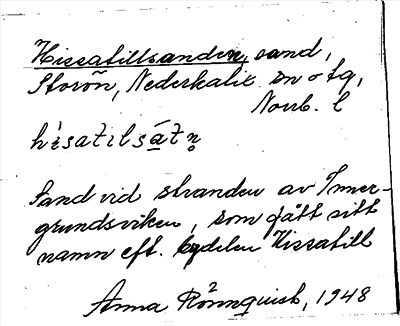 Hissatillsanden, sand,
Storön, Nederkalix sn o tg,
Norrb. l
sand vid stranden av Inner-
grundsviken, som fått sitt
namn eft. bydelen Hissatill
Anna Rönnquist, 1948